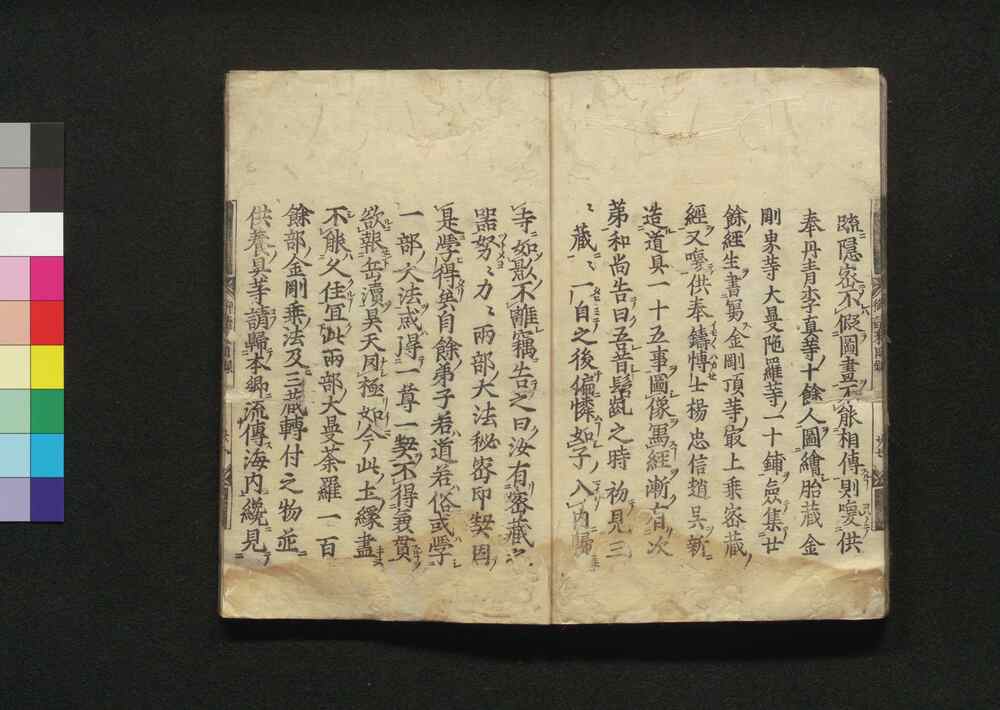 疏隱密不假圖畫不能相傳則喚供
奉丹青李真等十餘人圖繪胎藏金
剛東等大曼陀羅等一十鋪兼集廿
餘經生書寫金剛頂等最上乘密藏
經又喚供奉鑄博士楊忠信趙吳新
造道具一十五事圖像寫經漸有次
第和尚告曰吾昔髫齔之時初見三
藏三藏一目之後偏憐如子入內歸
寺如影不離竊告之曰汝有密藏之
器努力努力兩部大法秘密印契因
是學得矣自餘弟子若道若俗或學
一部大法或得一尊一契不得兼貫
欲報岳瀆昊天罔極如今此土緣盡
不能久住宜此兩部大曼荼羅一百
餘部金剛乘法及三藏轉付之物並
供養具等請歸本鄉流傳海內纔見